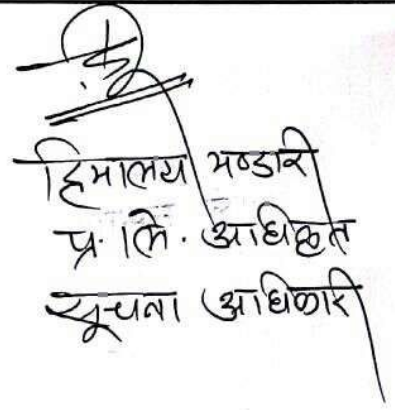 हिमालय भण्डारी
प्र. लि. अधिकृत
सूचना अधिकारी